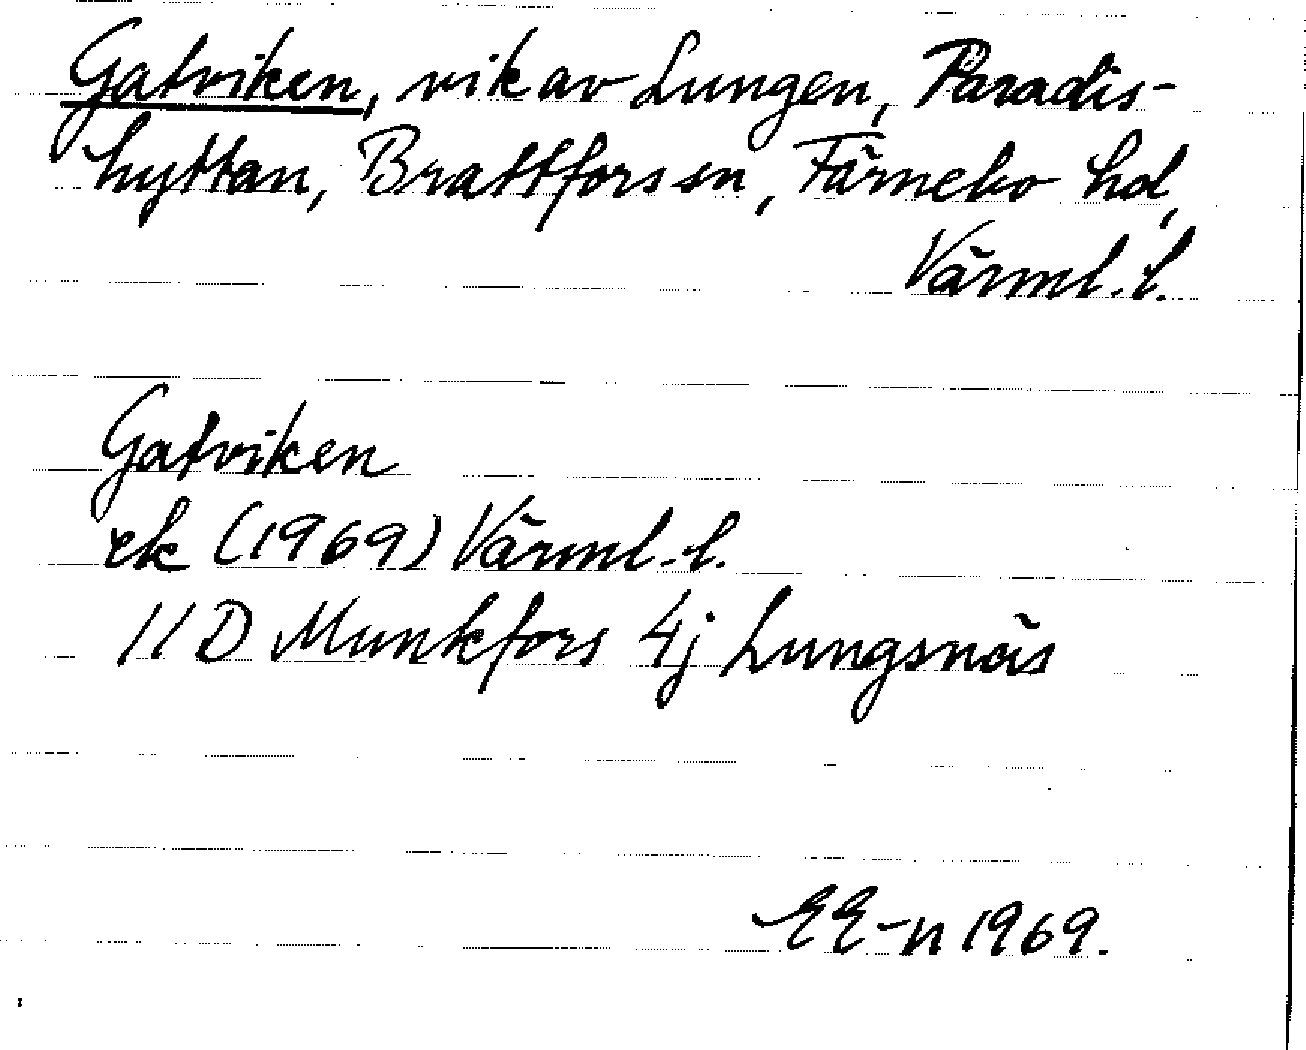 Gatviken, vik av Lungen, Paradis-
hyttan, Brattfors sn, Färnebo hd,
Värml. l.
Gatviken
ek (1969) Värml. l.
11 D Munkfors 4j Lungsnäs
EE-n 1969.